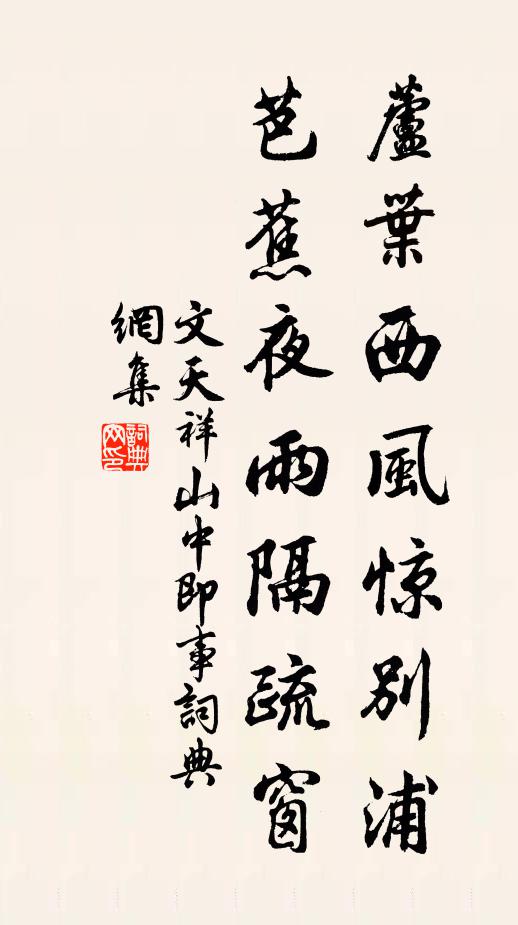 蘆葉西風惊別浦
芭蕉夜雨隔疏窗
文天祥山中即事詞典
網集
詞典
网印